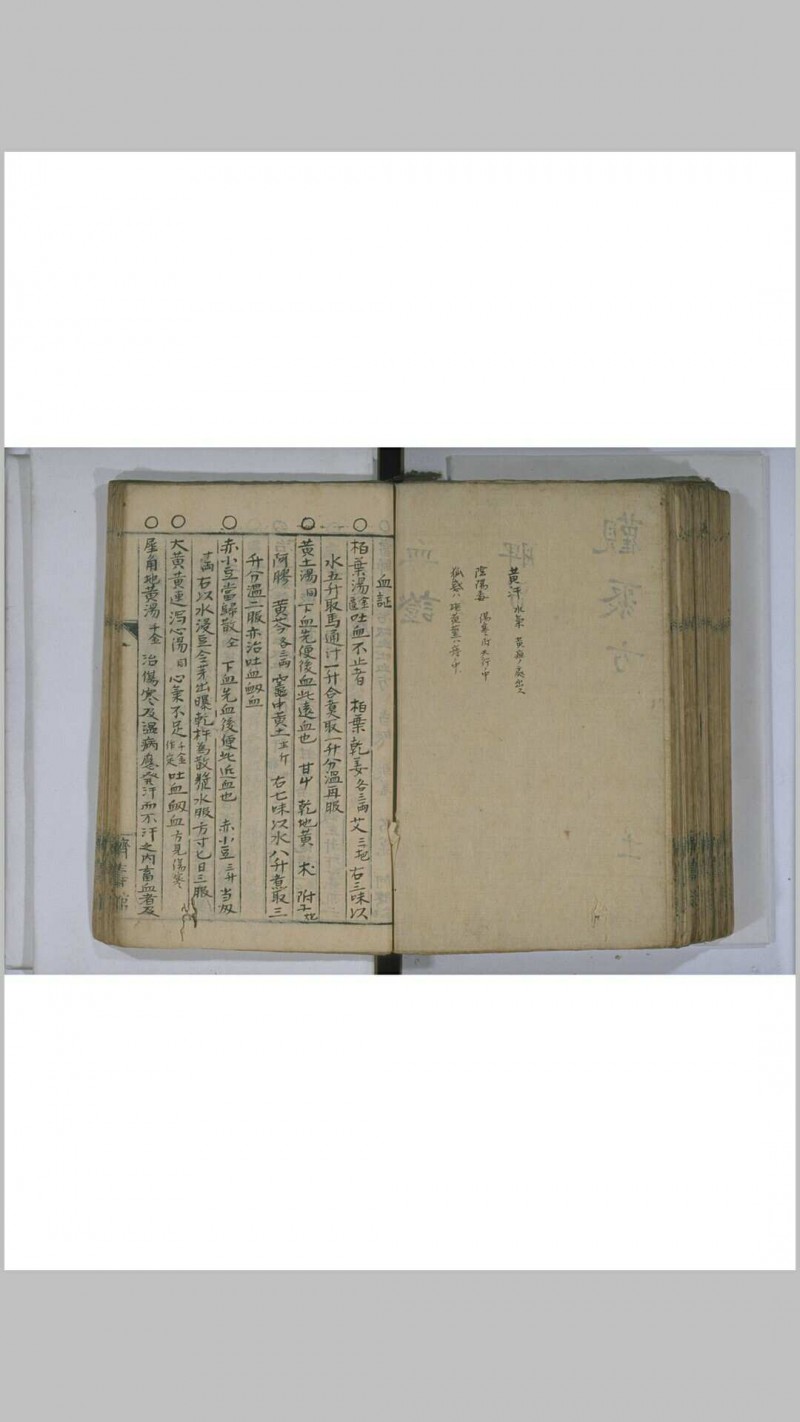 黄汗 水氣 黄疸ノ處出ス
陰陽毒 傷寒
血証
柏葉湯 吐血不止者 柏葉 乾姜各三両 艾三把 右三味以
水五升取馬通汁一升合煮取一升分温再服
黄土湯 同 下血先便後血此遠血也 甘艸 乾地黄 朮 附子
阿膠 黄芩各三両 竈中黄土半斤 右七味以水八升煮取三
升分温二服亦治吐血衂血
赤小豆當歸散 仝 下血先血後便此近血也 赤小豆三升 当
右以水浸豆令芽出曝乾杵為散漿水服方寸匕日三服
大黄黄連泻心湯 同 心氣不足 千金作不定 吐血衂血 方見傷寒
犀角地黄湯 千金 治傷寒及温病應発汗而不汗之内畜血者及